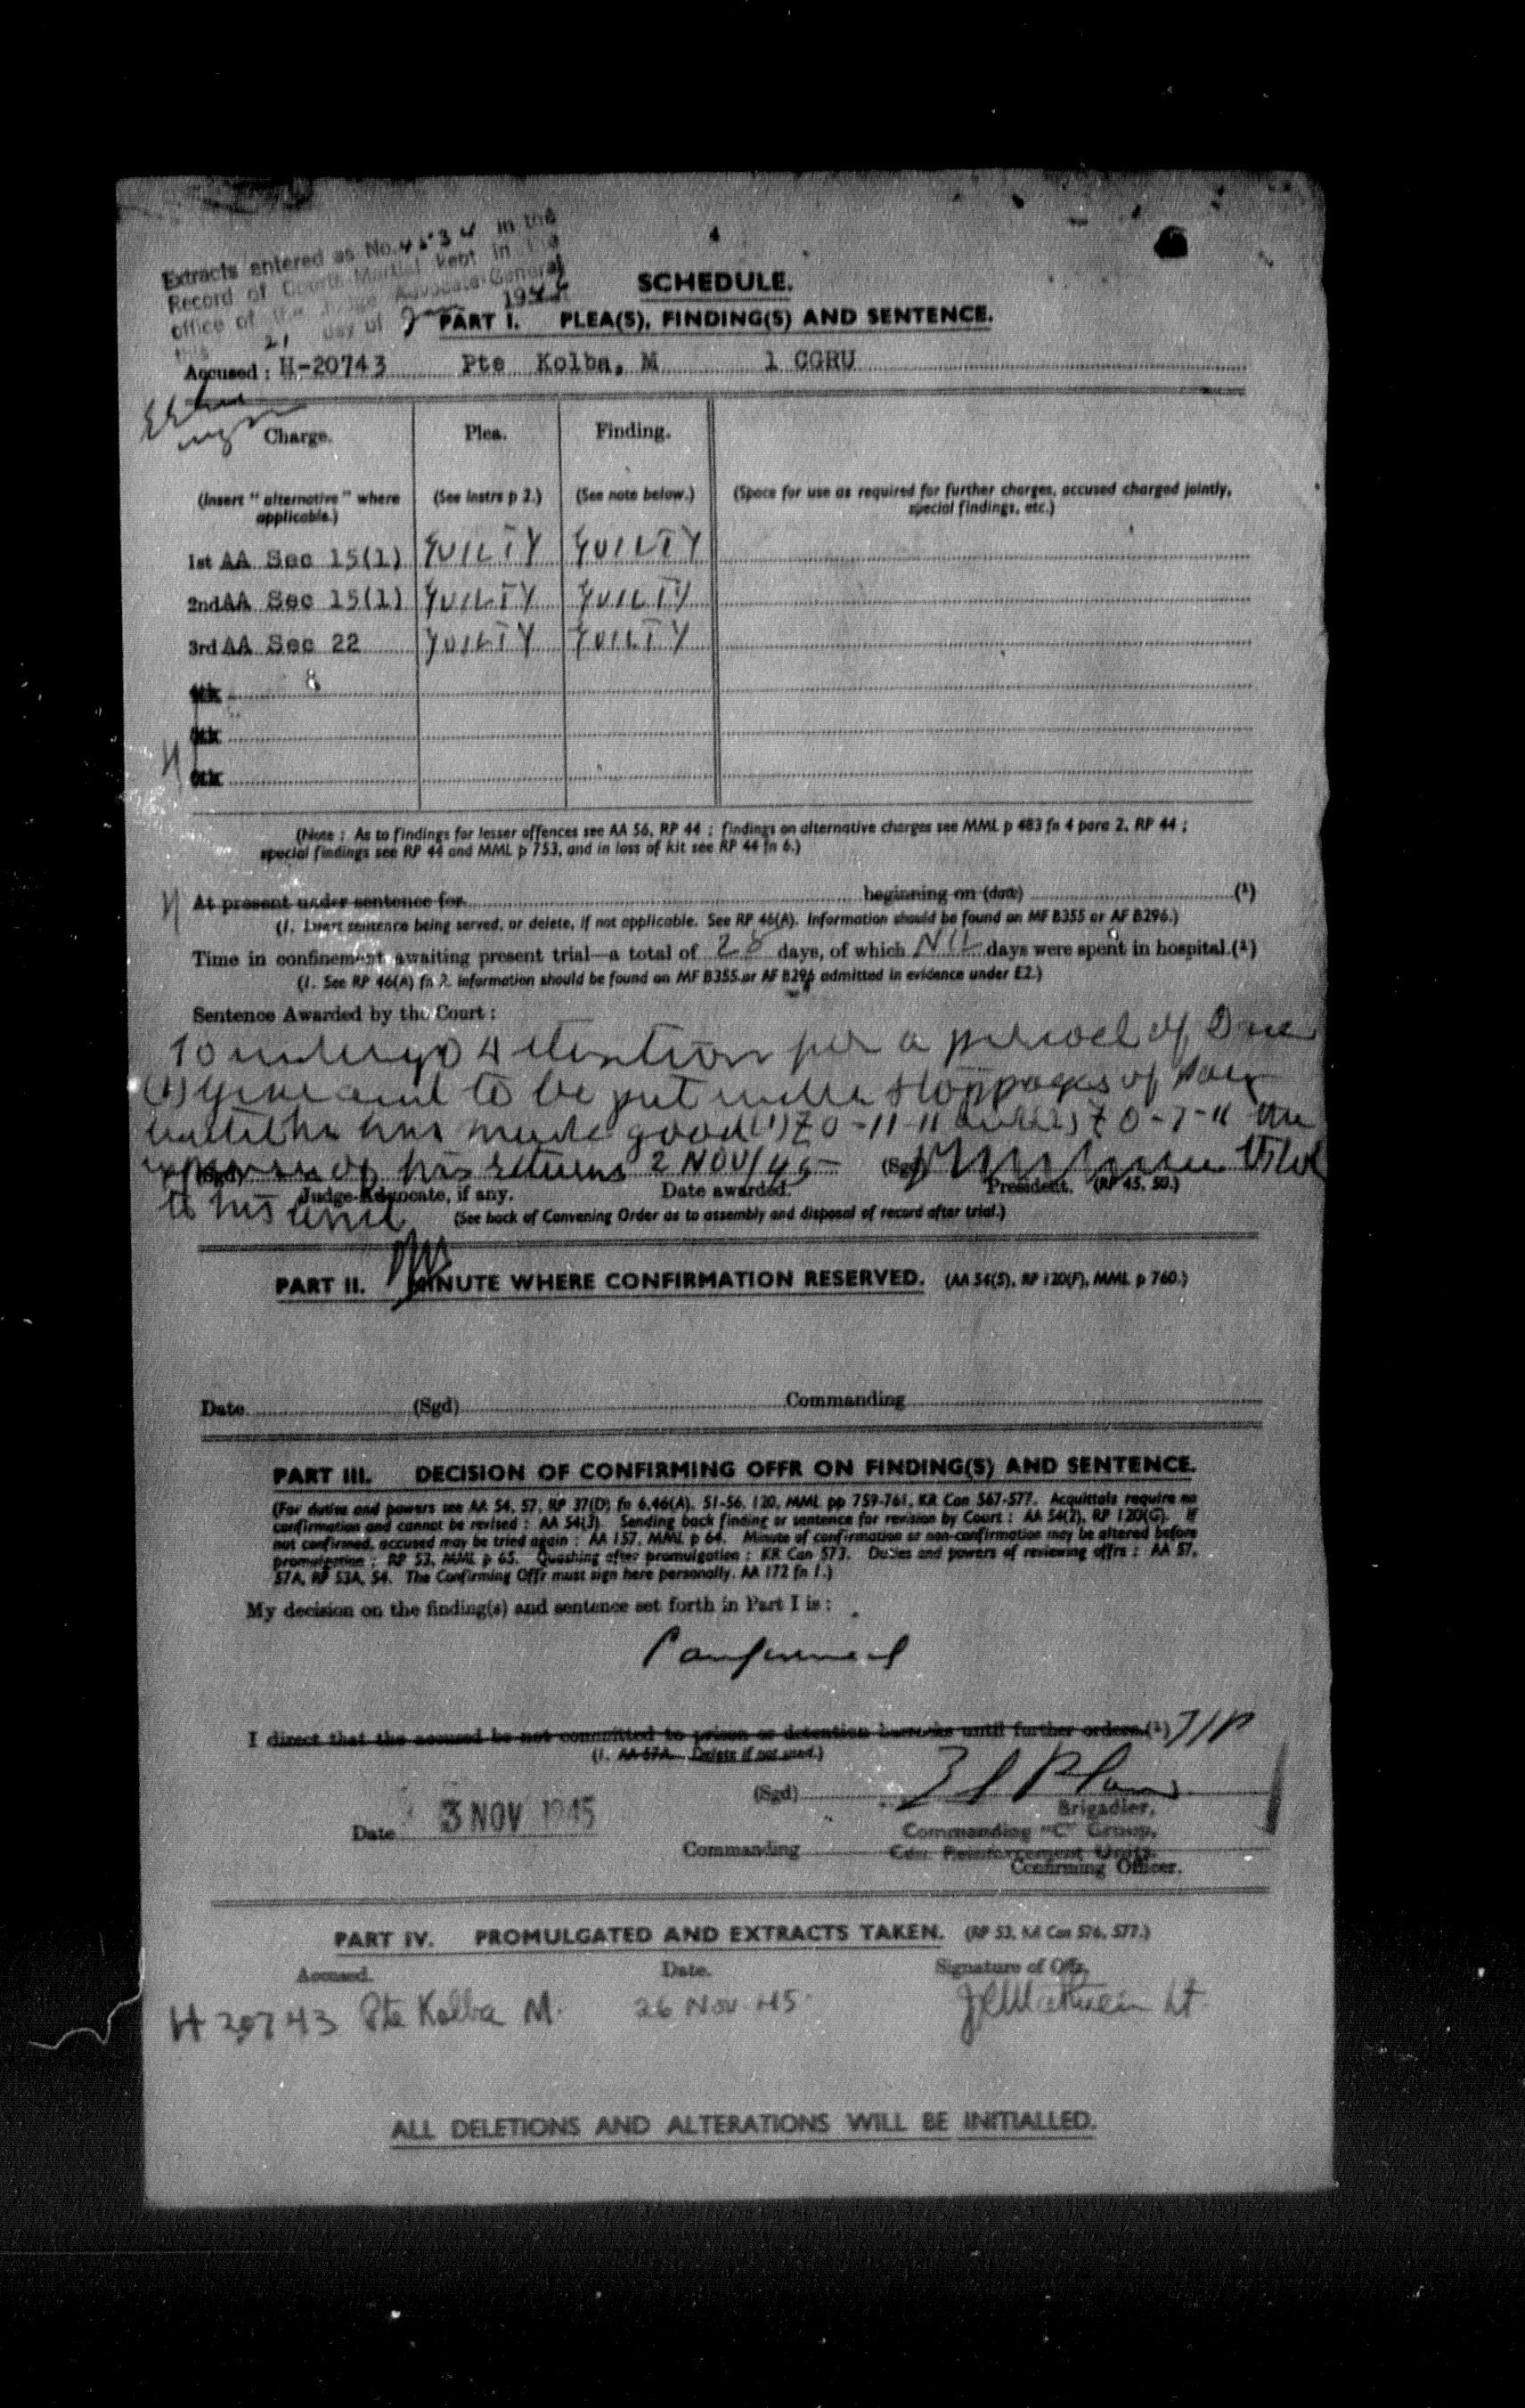 4
Extracts entered as No. 4534 in the
Record of Courts-Martial kept in the
office of the Judge Advocate-General
this 21 day of 194
SCHEDULE.
PART I. PLEA(S), FINDING(S) AND SENTENCE.
Accused: H-20743 Pte Kolba, M 1 CGRU
Charge. Plea. Finding.
(Insert "alternative" where applicable.) (See Instrs p 2.) (See note below.) (Space for use as required for further charges, accused charged jointly, special findings, etc.)
1st AA Sec 15(1) GUILTY GUILTY
2nd AA Sec 15(1) GUILTY GUILTY
3rd AA Sec 22 GUILTY GUILTY
4th
5th
6th
(Note: As to findings for lesser offences see AA 56, RP 44; findings on alternative charges see MML p 483 fn 4 para 2, RP 44;
special findings see RP 44 and MML p 753, and in loss of kit see RP 44 fn 6.)
At present under sentence for beginning on (date) (1)
(1. Insert sentence being served, or delete, if not applicable. See RP 46(A). Information should be found on MF B355 or AF B296.)
Time in confinement awaiting present trial—a total of 28 days, of which NIL days were spent in hospital.(1)
(1. See RP 46(A) fn 2. Information should be found on MF B355 or AF B296 admitted in evidence under E2.)
Sentence Awarded by the Court:
To undergo detention for a period of One
(1) year and to be put under stoppages of pay
until he has made good (1) £0-11-11 and (2) £0-7-11 the
expense of his returns 2 NOV/45 (Sgd)
(Sgd) Judge-Advocate, if any. Date awarded. President. (RP 45, 50.)
to his unit
(See back of Convening Order as to assembly and disposal of record after trial.)
PART II. MINUTE WHERE CONFIRMATION RESERVED. (AA 54(5), RP 120(F), MML p 760.)
Date (Sgd) Commanding
PART III. DECISION OF CONFIRMING OFFR ON FINDING(S) AND SENTENCE.
(For duties and powers see AA 54, 57, RP 37(D) fn 6,46(A), 51-56, 120, MML pp 759-761, KR Can 567-577. Acquittals require no
confirmation and cannot be revised: AA 54(3). Sending back finding or sentence for revision by Court: AA 54(2), RP 120(G). If
not confirmed, accused may be tried again: AA 157, MML p 64. Minute of confirmation or non-confirmation may be altered before
promulgation: RP 53, MML p 65. Quashing after promulgation: KR Can 573. Duties and powers of reviewing offrs: AA 57,
57A, RP 53A, 54. The Confirming Offr must sign here personally. AA 172 fn 1.)
My decision on the finding(s) and sentence set forth in Part I is:
Confirmed
I direct that the accused be not committed to prison or detention barracks until further orders.(1)
(1. AA 57A. Delete if not used.)
(Sgd)
Brigadier,
Date 3 NOV 1945
Commanding "C" Group,
Commanding Cdn Reinforcement Units.
Confirming Officer.
PART IV. PROMULGATED AND EXTRACTS TAKEN. (RP 53, KR Can 576, 577.)
Accused. Date. Signature of Offr.
H 20743 Pte Kolba M. 26 Nov 45. Lt.
ALL DELETIONS AND ALTERATIONS WILL BE INITIALLED.